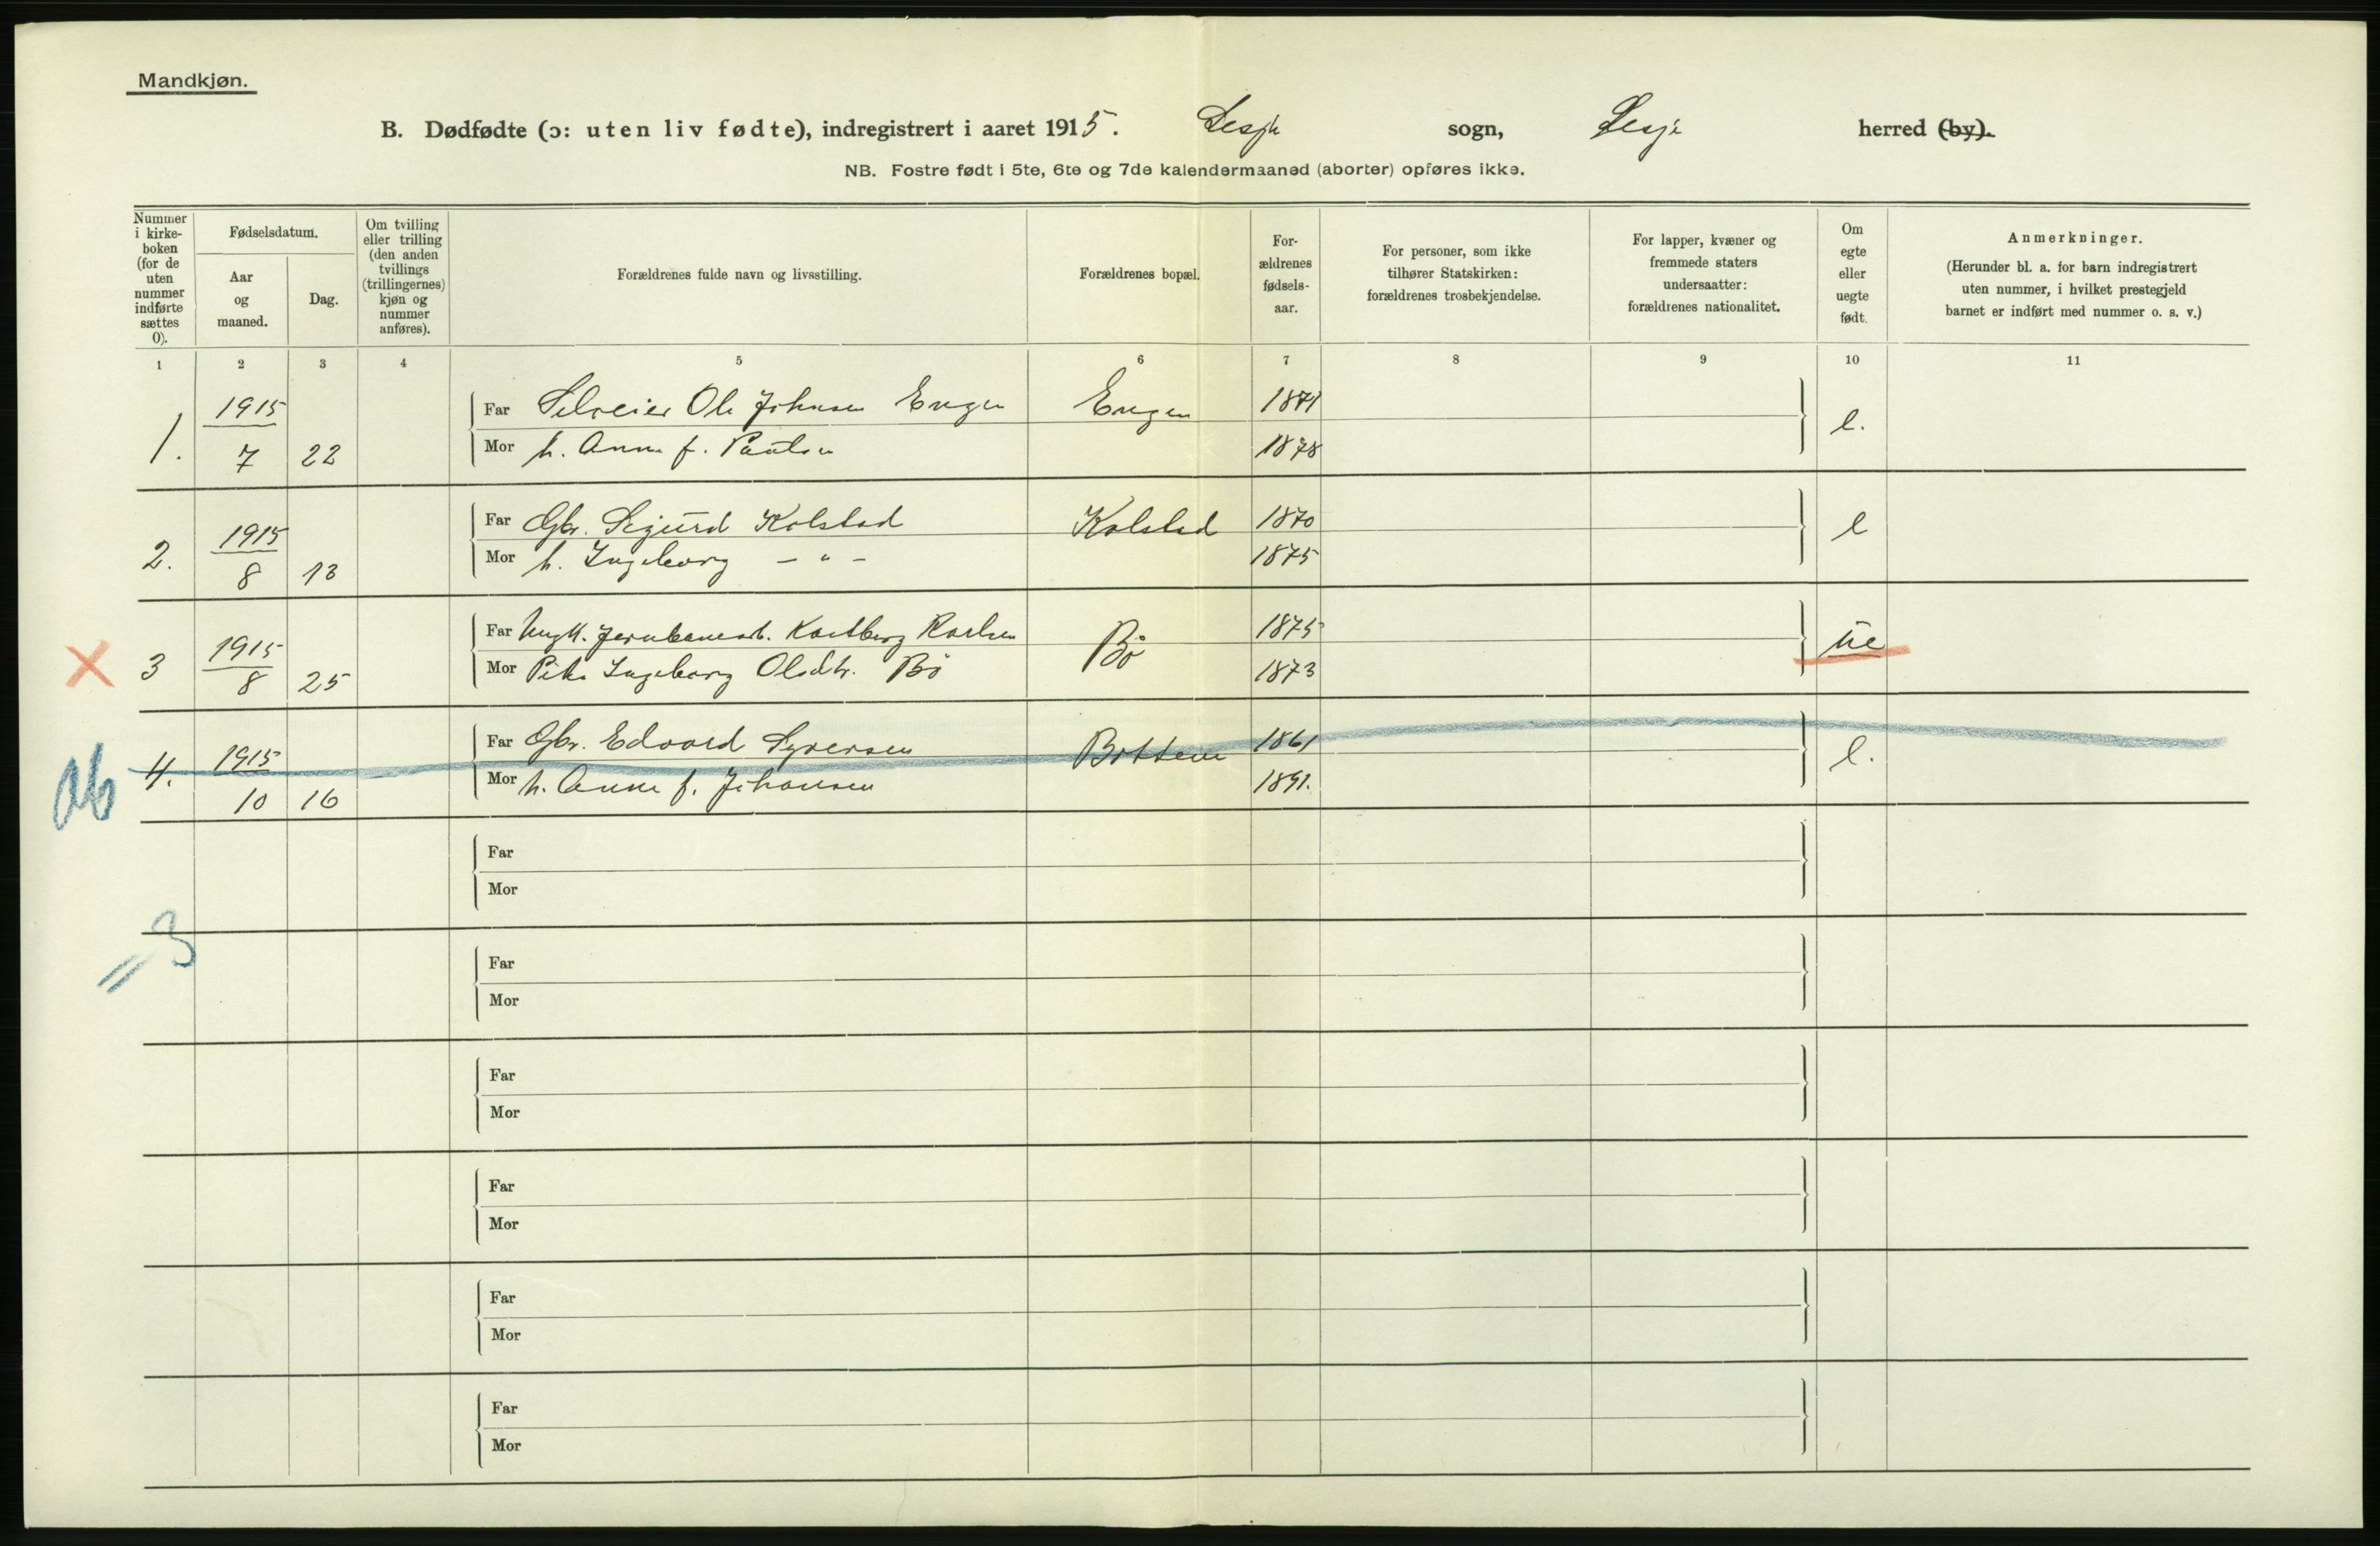 Mandkjøn.
B. Dødfødte (ɔ: uten liv fødte), indregistrert i aaret 1915. Lesje sogn, Lesje herred (by).
NB. Fostre født i 5te, 6te og 7de kalendermaaned (aborter) opføres ikke.
Nummer i kirke-boken (for de uten nummer indførte sættes 0).
Fødselsdatum.
Aar og maaned.
Dag.
Om tvilling eller trilling (den anden tvillings (trillingernes) kjøn og nummer anføres).
Forældrenes fulde navn og livsstilling.
Forældrenes bopæl.
For-ældrenes fødsels-aar.
For personer, som ikke tilhører Statskirken: forældrenes trosbekjendelse.
For lapper, kvæner og fremmede staters undersaatter: forældrenes nationalitet.
Om egte eller uegte født.
Anmerkninger.
(Herunder bl. a. for barn indregistrert uten nummer, i hvilket prestegjeld barnet er indført med nummer o. s. v.)
1 2 3 4 5 6 7 8 9 10 11
1. 1915 7 22 Far Selveier Ole Johnsen Engen Engen 1871 e.
Mor h. Anne f. Paulsen 1878
2. 1915 8 13 Far Gbr. Sigurd Kolstad Kolstad 1870 e
Mor h. Ingeborg - " - 1875
3 1915 8 25 Far Ungk. Jernbanearb. Karlsen Bö 1875 ue
Mor Pike Ingeborg Olsdtr. Bö 1873
4. 1915 10 16 Far Gbr. Edvard Syversen Bottem 1861 e.
Mor h. Anne f. Johansen 1891.
ab
Far
Mor
= 3
Far
Mor
Far
Mor
Far
Mor
Far
Mor
Far
Mor